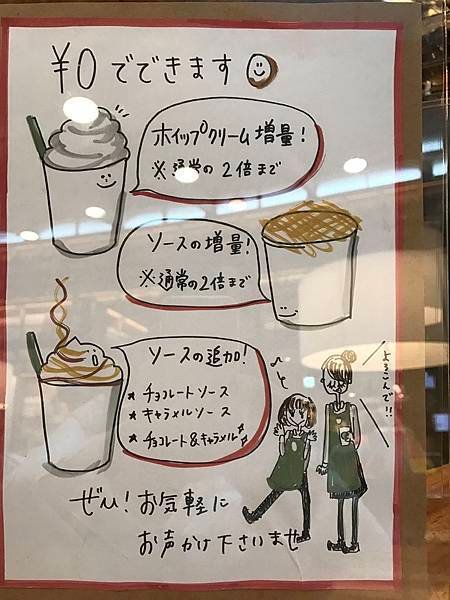 ¥0でできます
ホイップクリーム増量!
※通常の2倍まで
ソースの増量!
※通常の2倍まで
ソースの追加!
★チョコレートソース
★キャラメルソース
★チョコレート&キャラメル
よろこんで!!
ぜひ!お気軽に
お声かけ下さいませ